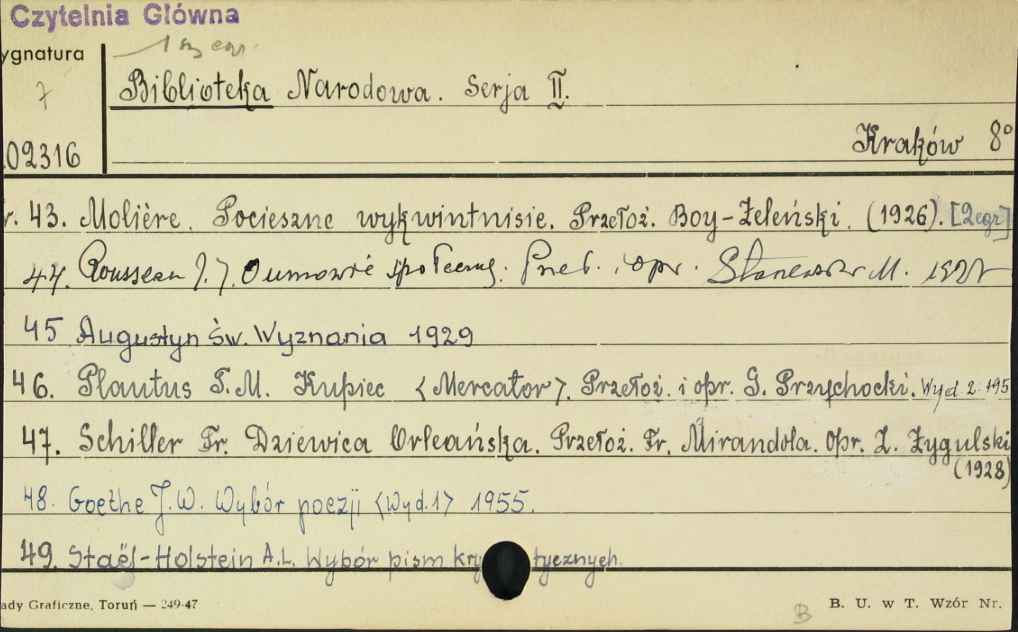 Czytelnia Główna
ygnatura
1 szy egz.
7
Biblioteka Narodowa. Serja II.
02316
Kraków 8°
r. 43. Molière. Pocieszne wykwintnisie. Przełoż. Boy-Żeleński. (1926). [2egz]
44. Rousseau J. J. O umowie społecznej. i opr. M.
45 Augustyn Św. Wyznania 1929
46. Plautus T.M. Kupiec <Mercator>. Przełoż. i opr. G. Przychocki. Wyd 2 195
47. Schiller Fr. Dziewica Orleańska. Przełoż. Fr. Mirandola. Opr. Z. Żygulski
(1928)
48. Goethe J.W. Wybór poezji <Wyd.1> 1955.
49. Staël-Holstein A.L. Wybór pism kry tycznych.
ady Graficzne, Toruń — 249-47
B
B. U. w T. Wzór Nr.